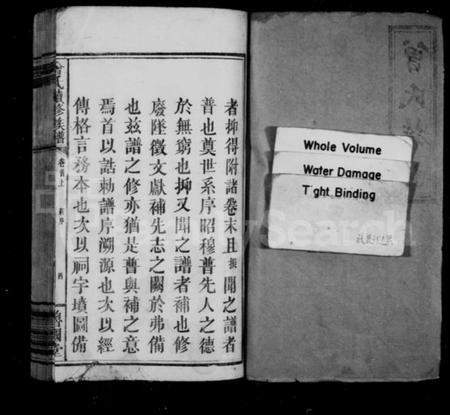 者抑得附諸卷末且振聞之譜者
普也奠世系序昭穆普先人之德
於無窮也抑又聞之譜者補也修
廢墜徵文獻補先志之闕於弗備
也茲譜之修亦猶是普與補之意
焉首以誥勅譜序溯源也次以經
傳格言務本也次以祠宇墳圖備
曾氏續修族譜
卷首上
新序
四
魯國堂
曾氏
Whole Volume
Water Damage
Tight Binding
FamilySearch